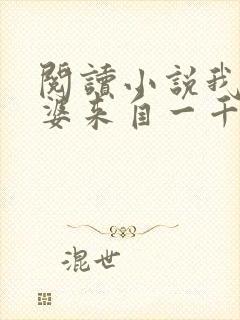 閱讀小説我
婆来自一千
混世